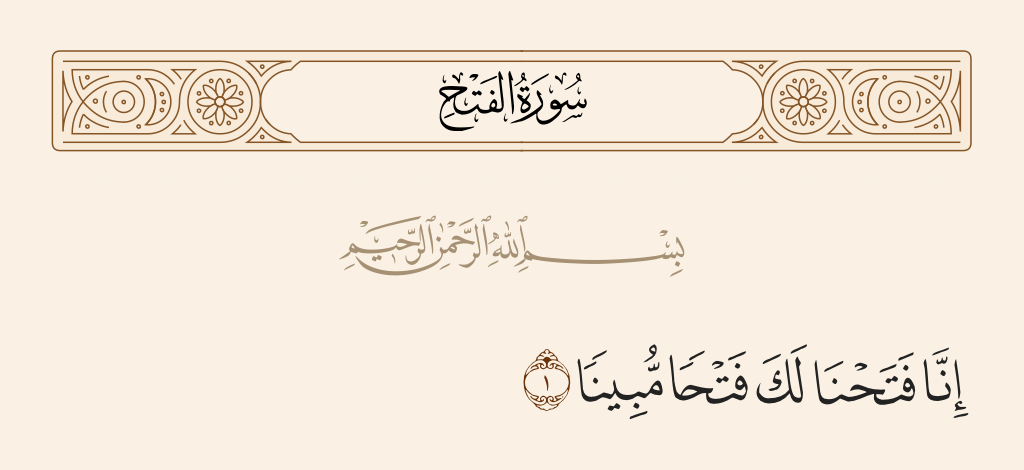 سُورَةُ الفَتْحِ
بِسْمِ ٱللَّهِ ٱلرَّحْمَٰنِ ٱلرَّحِيمِ
إِنَّا فَتَحْنَا لَكَ فَتْحَا مُّبِينَا ١